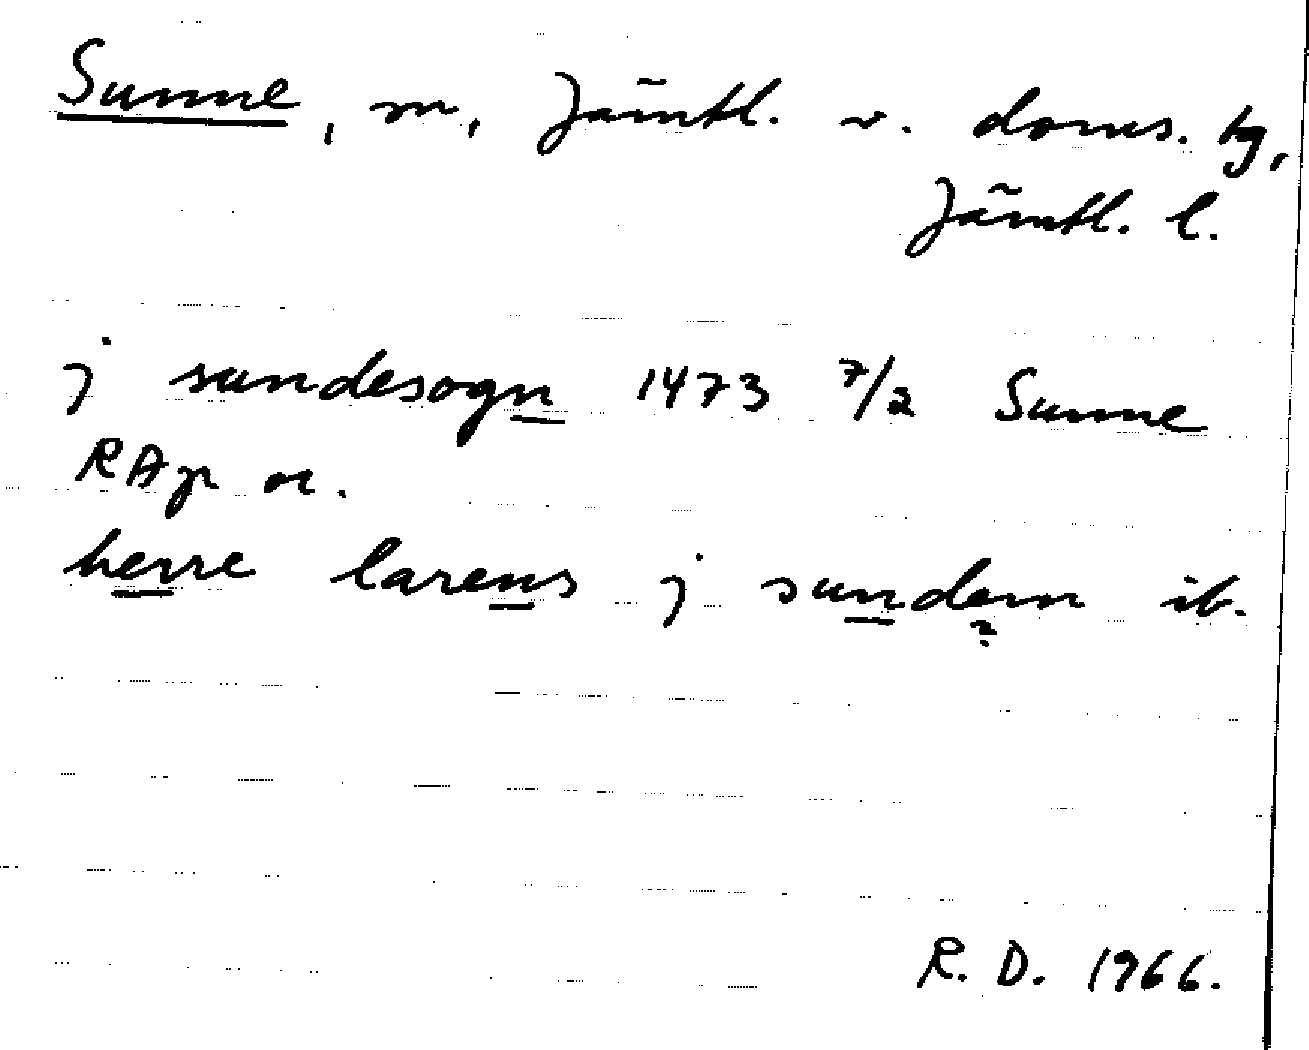 Sunne, sn, Jämtl. v. doms. tg,
Jämtl. l.
j sundesogn 1473 7/2 Sunne
RAp or.
herre larens j sundem ib.
R. D. 1966.